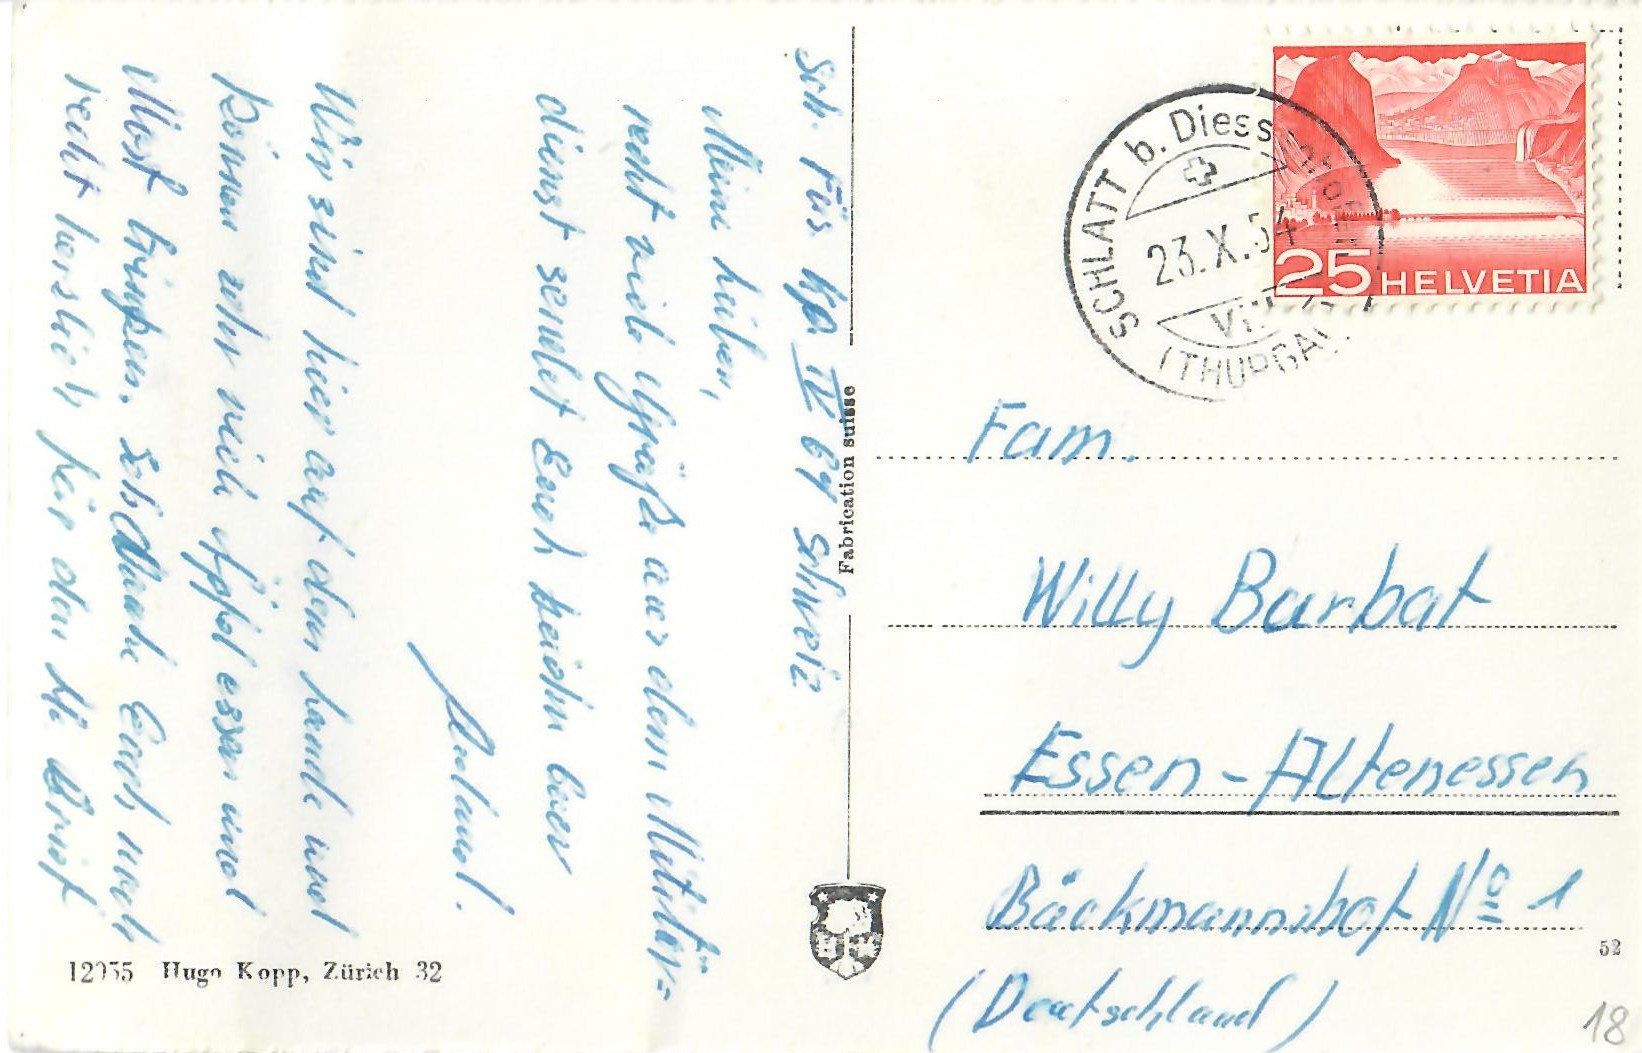 Sch. Füs. Kp. IV 61 Schweiz
Meine Lieben,
recht viele Grüße aus dem Militär=
dienst sendet Euch beiden Euer
Wir sind hier auf dem Lande und
können sehr viel Äpfel essen und
Most trinken. Ich danke Euch noch
recht herzlich für den lb. Brief
Fabrication suisse
12955 Hugo Kopp, Zürich 32
SCHLATT b. Diessenhofen
23.X.54
VII
(THURGAU)
25 HELVETIA
Fam.
Willy Barbat
Essen-Altenessen
Bäckmannshof No 1
(Deutschland)
52
18